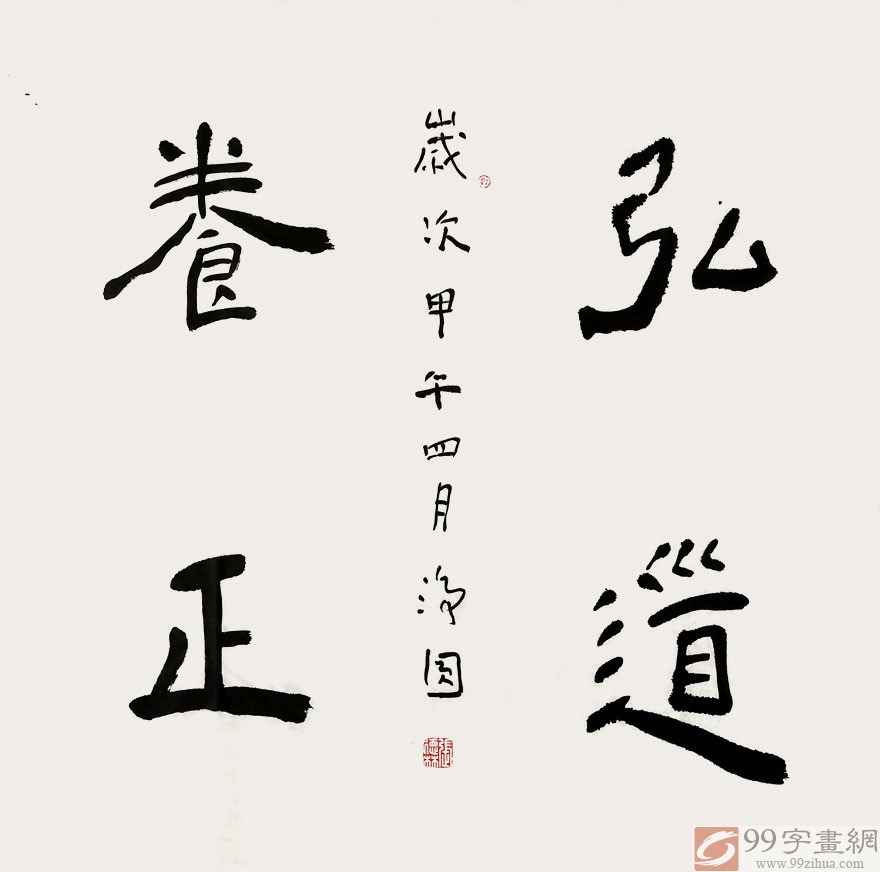 弘道
歲次甲午四月淨圓
養正
99字畫網
www.99zihua.com